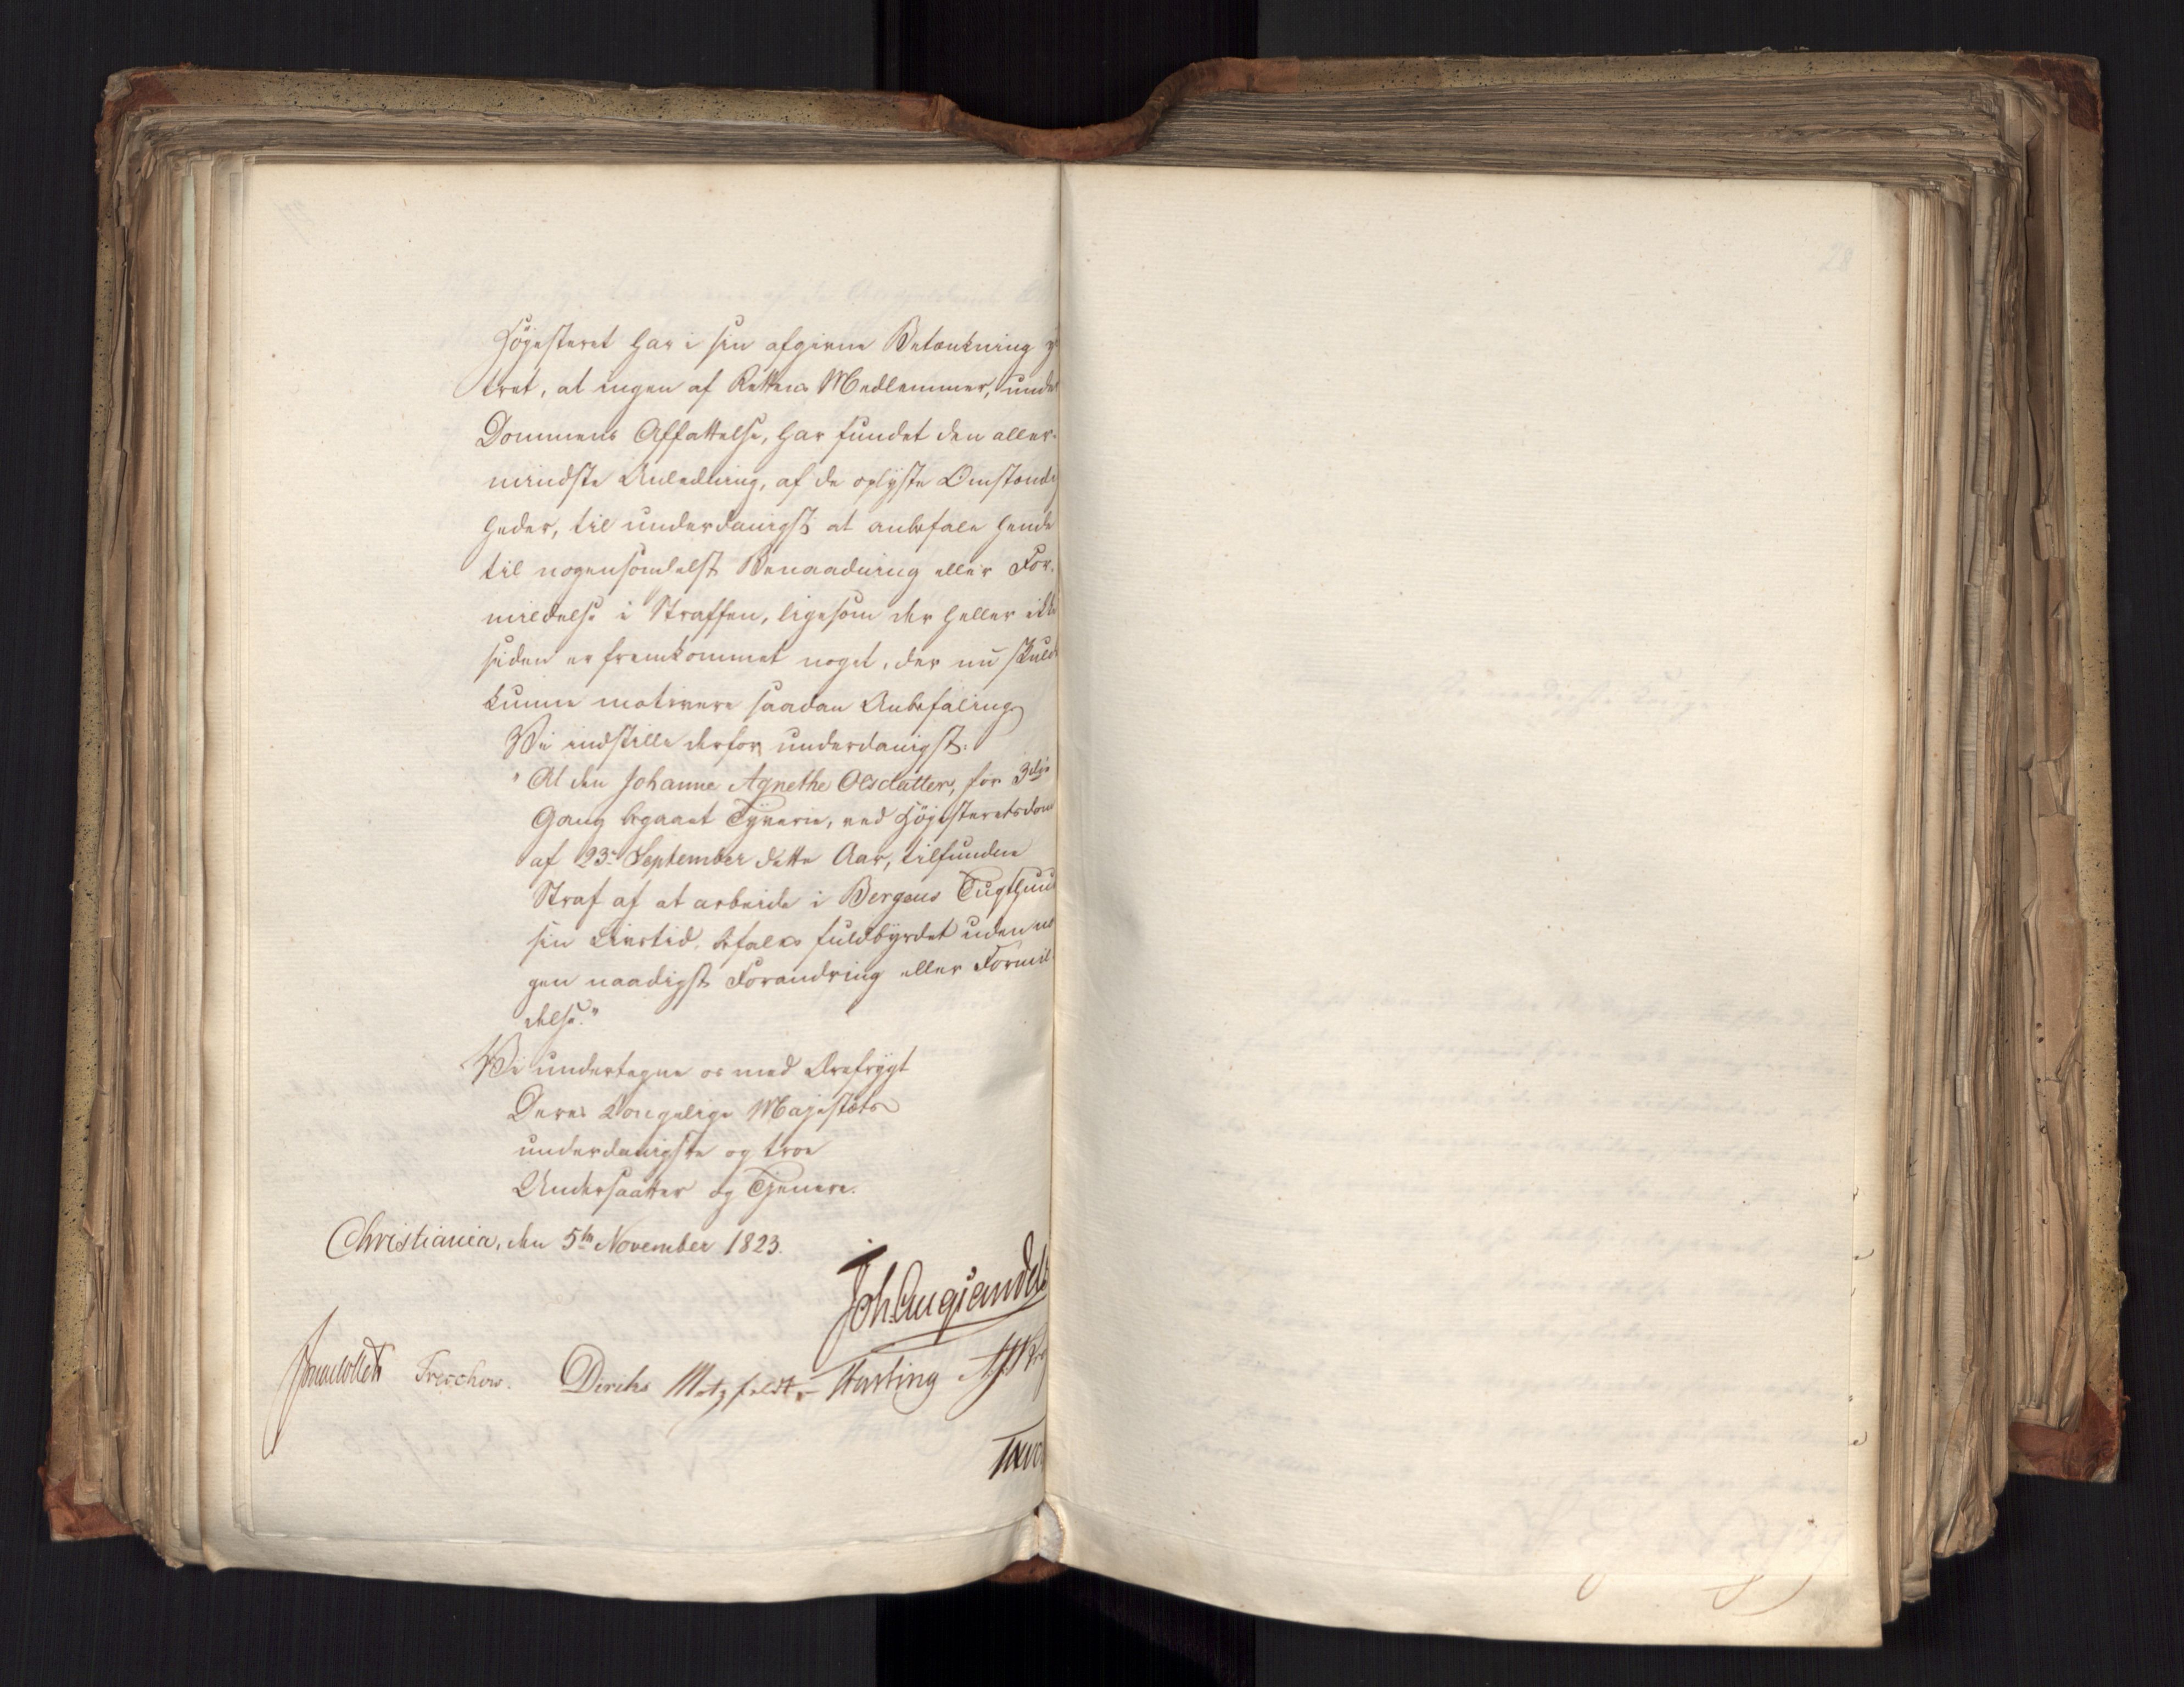 Højesteret har i sin afgivne Betænkning y
tret, at ingen af Rettens Medlemmer, under
Dommens Affattelse, har fundet den aller-
mindste Anledning, af de oplyste Omstændig
heder, til underdanigst at anbefale hende
til nogensomhelst Benaadning eller For-
mildelse i Straffen, ligesom der heller ikke
siden er fremkommet noget, der nu skulde
kunne motivere saadan Anbefaling.
Vi indstille derfor underdanigst:
"At den Johanne Agnethe Olsdatter, for 3die
Gang begaaet Tyverie, ved Højesteretsdom
af 23de September dette Aar, tilfundne
Straf af at arbeide i Bergens Tugthuus
sin Livstid, befales fuldbyrdet uden no
gen naadigst Forandring eller Formil-
delse."
Vi undertegne os med Ærefrygt
Deres Kongelige Majestæts
underdanigste og troe
Undersaatter og Tjenere.
Christiania, den 5te November 1823.
Joh. Aug. Sandels
Jonas Collett Treschow. Diriks Motzfeldt. Fasting
28